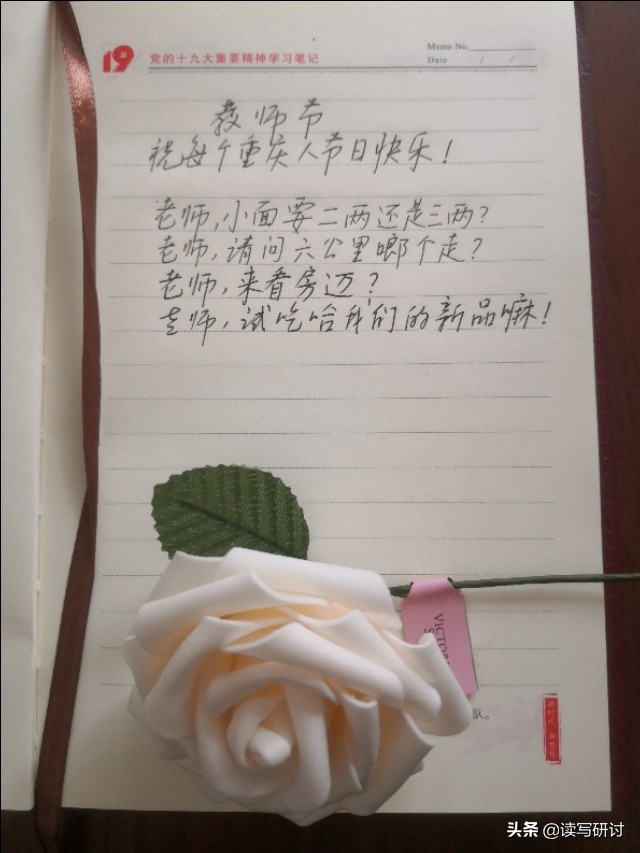 19
党的十九大重要精神学习笔记
Memo No.
Date / /
教师节
祝每个重庆人节日快乐！
老师，小面要二两还是三两？
老师，请问六公里啷个走？
老师，来看房迈？
老师，试吃哈我们的新品嘛！
VICTOR
队。
头条 @读写研讨